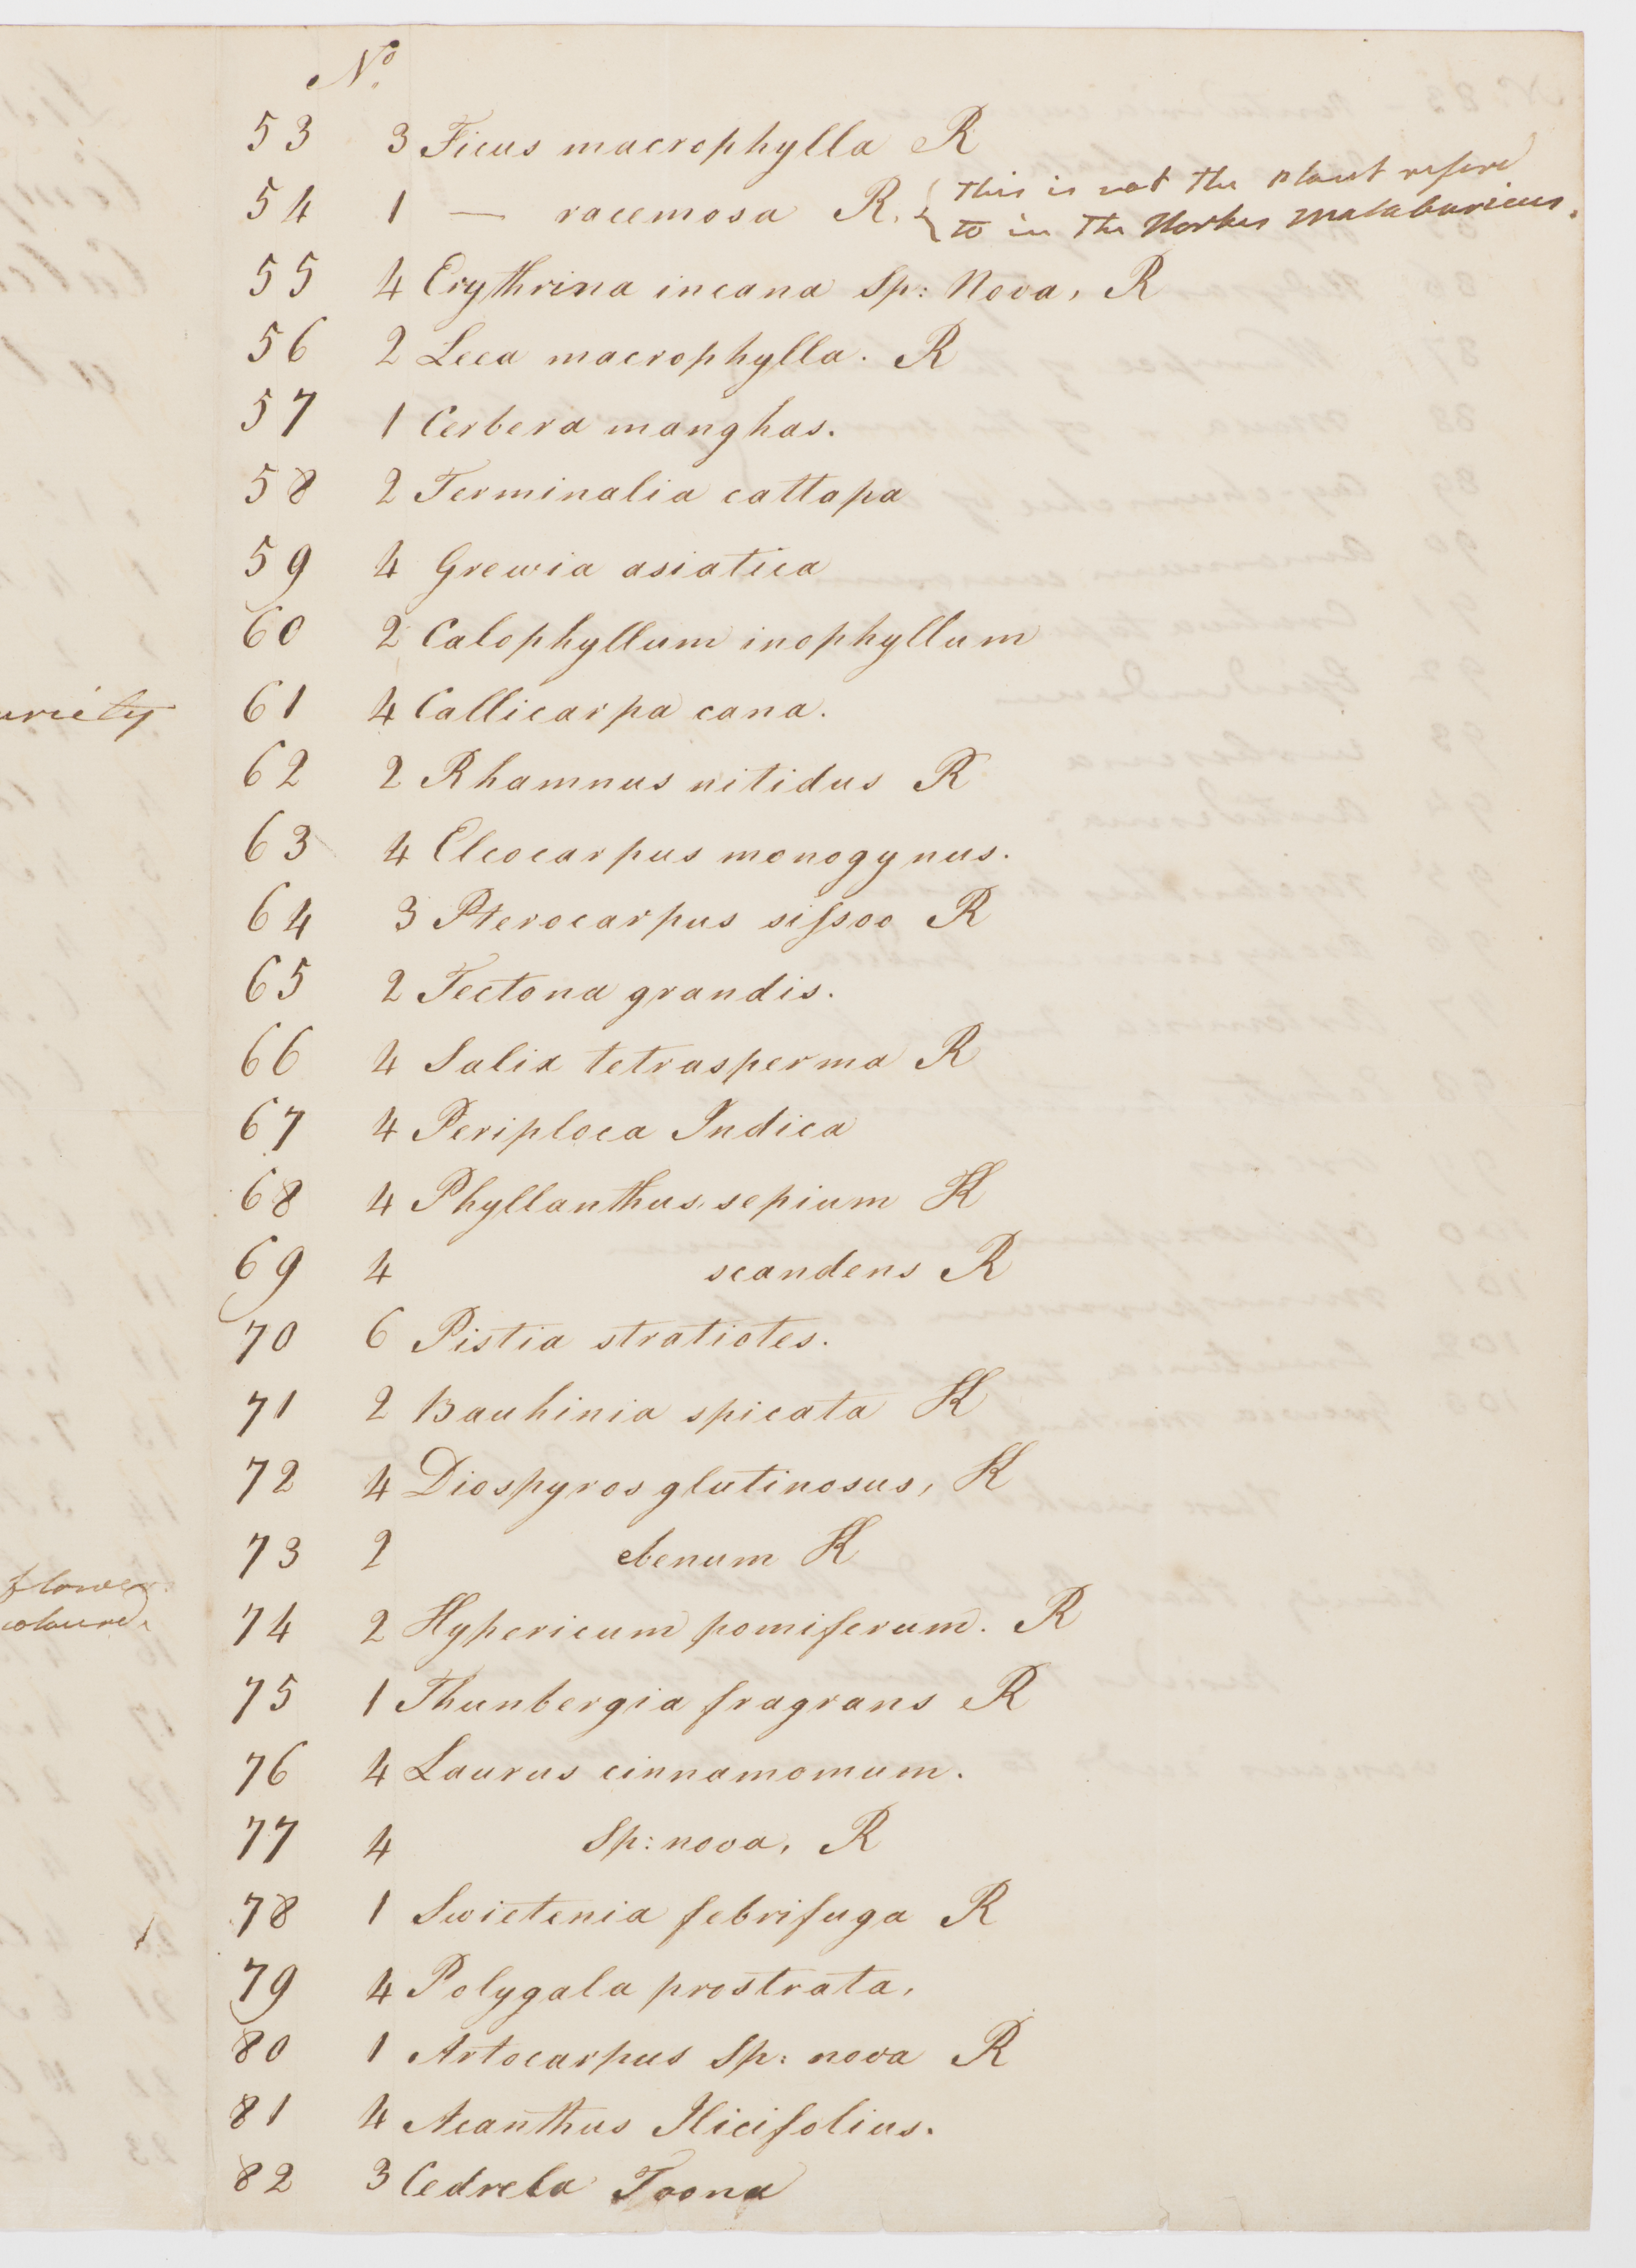 No.
53 3 Ficus macrophylla R
54 1 — racemosa R. { This is not the plant refered
to in the Hortus Malabaricus.
55 4 Erythrina incana Sp: Nova, R
56 2 Leea macrophylla. R
57 1 Cerbera manghas.
58 2 Terminalia cattapa
59 4 Grewia asiatica
60 2 Calophyllum inophyllum
61 4 Callicarpa cana.
62 2 Rhamnus nitidus R
63 4 Eleocarpus monogynus.
64 3 Pterocarpus sifsoo R
65 2 Tectona grandis.
66 4 Salix tetrasperma R
67 4 Periploca Indica
68 4 Phyllanthus sepium K
69 4 scandens R
70 6 Pistia stratiotes.
71 2 Bauhinia spicata K
72 4 Diospyros glutinosus, K
73 2 ebenum K
74 2 Hypericum pomiferum. R
75 1 Thunbergia fragrans R
76 4 Laurus cinnamomum.
77 4 Sp: nova, R
78 1 Swietenia febrifuga R
79 4 Polygala prostrata,
80 1 Artocarpus Sp: nova R
81 4 Acanthus Ilicifolius.
82 3 Cedrela Toona
uriety
flower
coloured.